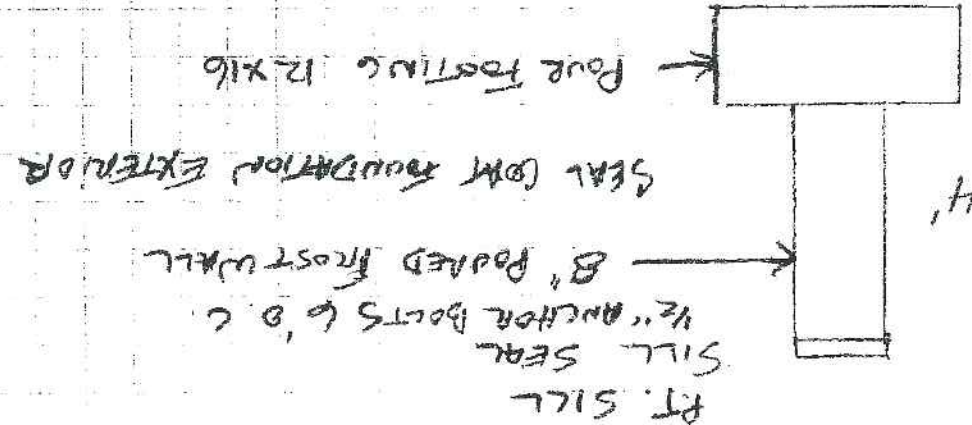 P.T. SILL
SILL SEAL
1/2" ANCHOR BOLTS 6' O C
8" POURED FROST WALL
4'
SEAL COAT FOUNDATION EXTERIOR
POUR FOOTING 12 X 16